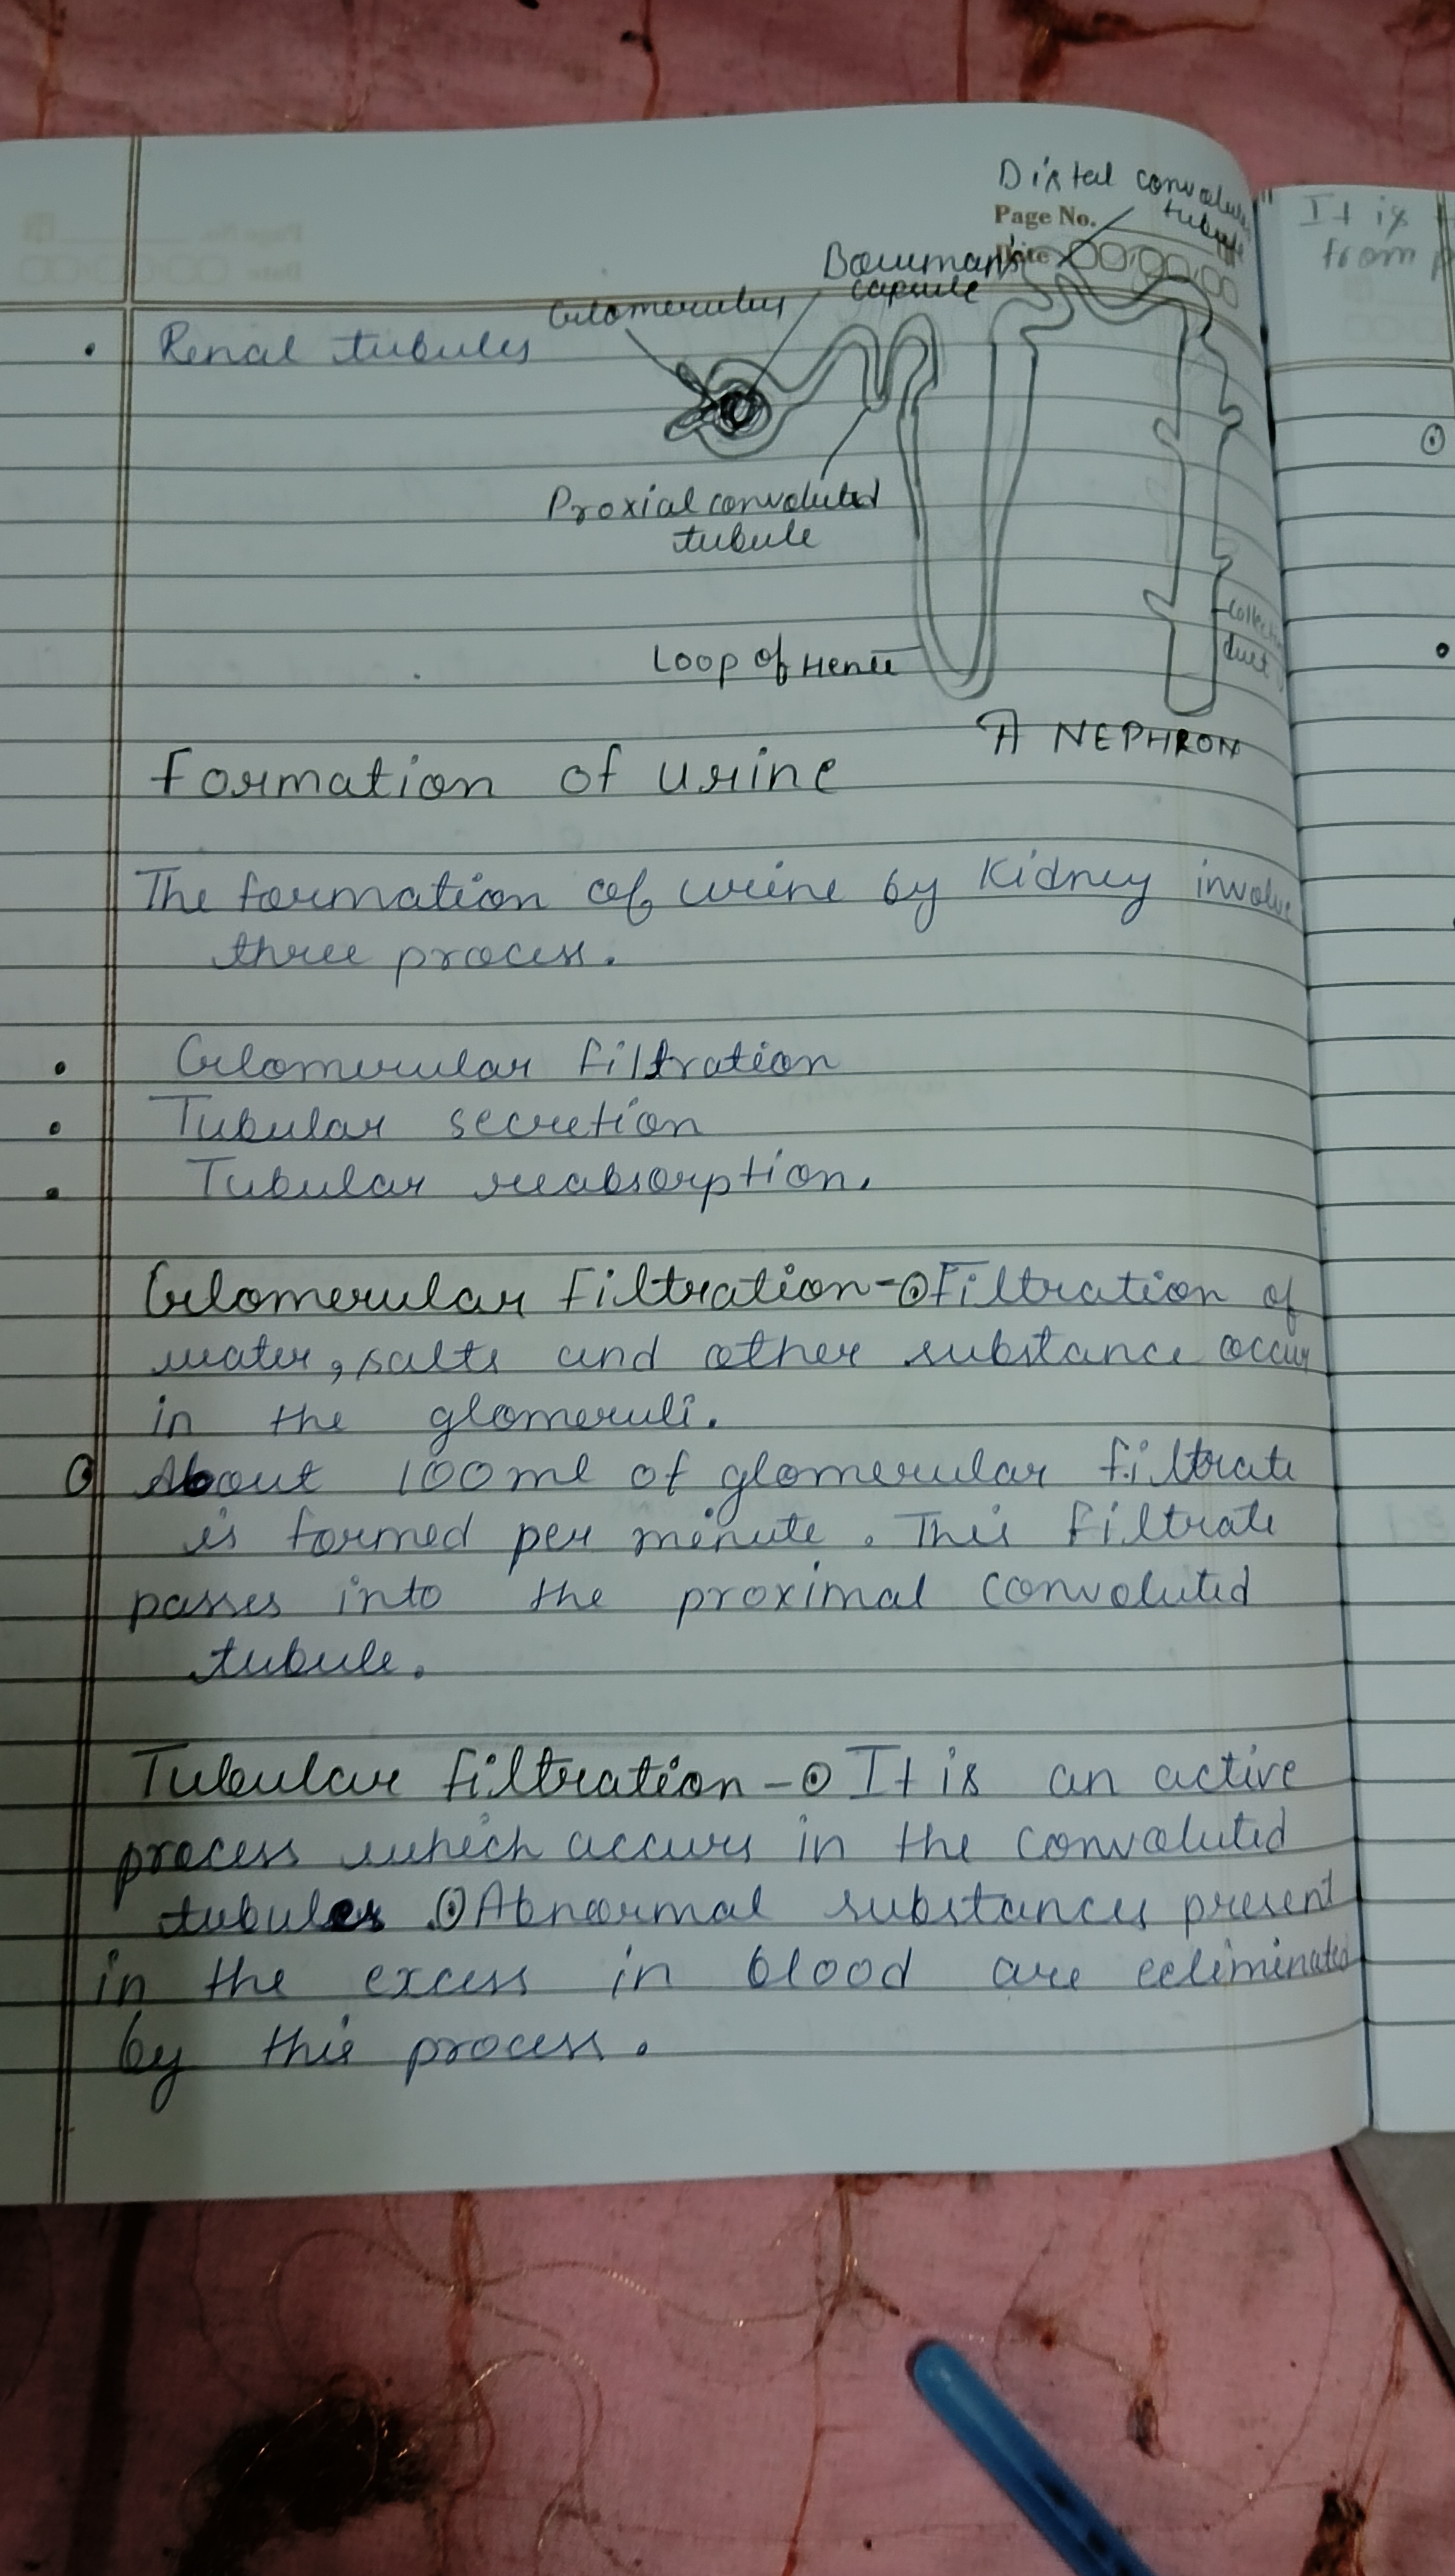 Distal convolu
tubule
Page No.
Date
Bowman's
capsule
Glomerulus
• Renal tubules
Proxial convoluted
tubule
Loop of Henle
collecti
duct
A NEPHRON
Formation of urine
The formation of urine by Kidney involve
three process.
• Glomerular filtration
• Tubular secretion
• Tubular reabsorption.
Glomerular filtration - Filtration of
water, salts and other substance occur
in the glomeruli.
About 100ml of glomerular filtrate
is formed per minute. This filtrate
passes into the proximal convoluted
tubule.
Tubular filtration - It is an active
process which occurs in the convoluted
tubules. Abnormal substances present
in the excess in blood are eeliminated
by this process.
It is
from